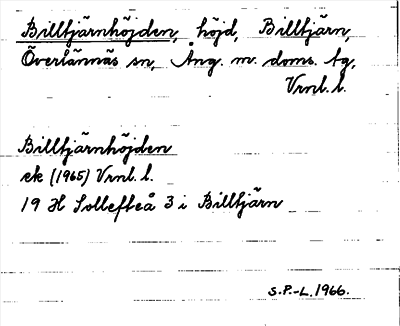 Billtjärnhöjden, höjd, Billtjärn,
Överlännäs sn, Ång. m. doms. tg,
Vrnl. l.
Billtjärnhöjden
ek (1965) Vrnl. l.
19 H Sollefteå 3 i Billtjärn
S.P.-L. 1966.